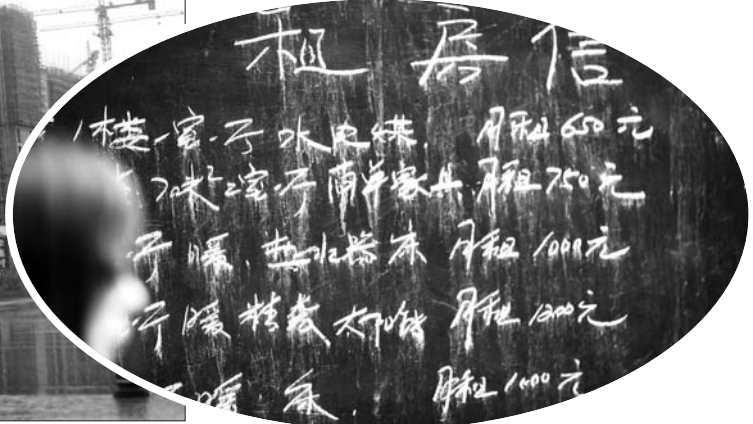 租房信
1楼一室一厅 水电煤. 月租650元
70米²二室一厅 简单家具 月租750元
厅 暖. 热水器 床 月租1000元
厅 暖 精装 太阳能 月租1200元
暖. 床. 月租1000元